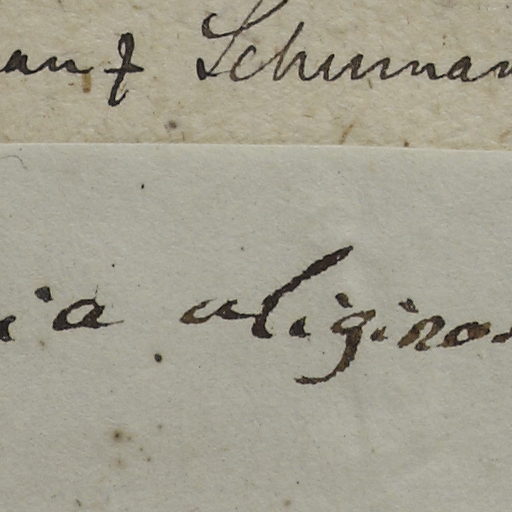 an f Schuman
ia uliginos